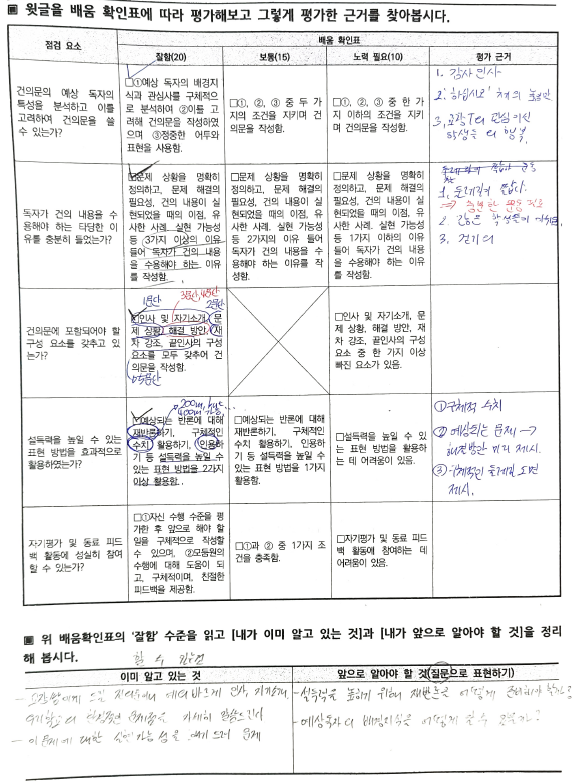 ■ 윗글을 배움 확인표에 따라 평가해보고 그렇게 평가한 근거를 찾아봅시다.
점검 요소
배움 확인표
잘함(20)
보통(15)
노력 필요(10)
평가 근거
건의문의 예상 독자의
특성을 분석하고 이를
고려하여 건의문을 쓸
수 있는가?
□①예상 독자의 배경지
식과 관심사를 구체적으
로 분석하여 ②이를 고
려해 건의문을 작성하였
으며 ③정중한 어투와
표현을 사용함.
□①, ②, ③ 중 두 가
지의 조건을 지키며 건
의문을 작성함.
□①, ②, ③ 중 한 가
지 이하의 조건을 지키
며 건의문을 작성함.
1. 감사 인사
2. 하십시오체의 높임말
3. 교장T의 관심이신
학생들의 행복.
독자가 건의 내용을 수
용해야 하는 타당한 이
유를 충분히 들었는가?
□문제 상황을 명확히
정의하고, 문제 해결의
필요성, 건의 내용이 실
현되었을 때의 이점, 유
사한 사례, 실현 가능성
등 3가지 이상의 이유
들어 독자가 건의 내용
을 수용해야 하는 이유
를 작성함.
□문제 상황을 명확히
정의하고, 문제 해결의
필요성, 건의 내용이 실
현되었을 때의 이점, 유
사한 사례, 실현 가능성
등 2가지의 이유 들어
독자가 건의 내용을 수
용해야 하는 이유를 작
성함.
□문제 상황을 명확히
정의하고, 문제 해결의
필요성, 건의 내용이 실
현되었을 때의 이점, 유
사한 사례, 실현 가능성
등 1가지 이하의 이유
들어 독자가 건의 내용
을 수용해야 하는 이유
를 작성함.
1. 둘레길이 좁다.
⇒ 충분한 운동
2. 많은 학생들이
3. 건기대
건의문에 포함되어야 할
구성 요소를 갖추고 있
는가?
1문단
3문단, 4문단
2문단
□인사 및 자기소개, 문
제 상황, 해결 방안, 재
차 강조, 끝인사의 구성
요소를 모두 갖추어 건
의문을 작성함.
5문단
□인사 및 자기소개, 문
제 상황, 해결 방안, 재
차 강조, 끝인사의 구성
요소 중 한 가지 이상
빠진 요소가 있음.
설득력을 높일 수 있는
표현 방법을 효과적으로
활용하였는가?
200m,
400m
□예상되는 반론에 대해
재반론하기, 구체적인
수치 활용하기, 인용하
기 등 설득력을 높일 수
있는 표현 방법을 2가지
이상 활용함.
□예상되는 반론에 대해
재반론하기, 구체적인
수치 활용하기, 인용하
기 등 설득력을 높일 수
있는 표현 방법을 1가지
활용함.
□설득력을 높일 수 있
는 표현 방법을 활용하
는 데 어려움이 있음.
① 구체적 수치
② 예상되는 문제 →
해결방안 미리 제시.
③ 구체적인 둘레길 도면
제시.
자기평가 및 동료 피드
백 활동에 성실히 참여
할 수 있는가?
□①자신 수행 수준을 평
가한 후 앞으로 해야 할
일을 구체적으로 작성할
수 있으며, ②모둠원의
수행에 대해 도움이 되
고, 구체적이며, 친절한
피드백을 제공함.
□①과 ② 중 1가지 조
건을 충족함.
□자기평가 및 동료 피드
백 활동에 참여하는 데
어려움이 있음.
■ 위 배움확인표의 '잘함' 수준을 읽고 [내가 이미 알고 있는 것]과 [내가 앞으로 알아야 할 것]을 정리
해 봅시다.
할 수 있는것
이미 알고 있는 것
앞으로 알아야 할 것(질문으로 표현하기)
- 예의바르게 인사, 자기소개,
자세히 말씀드린다
- 이 문제에 대한 실현가능성을 문제
- 설득력을 높이기 위해 재반론은 어떻게
- 예상독자의 배경지식은 어떻게